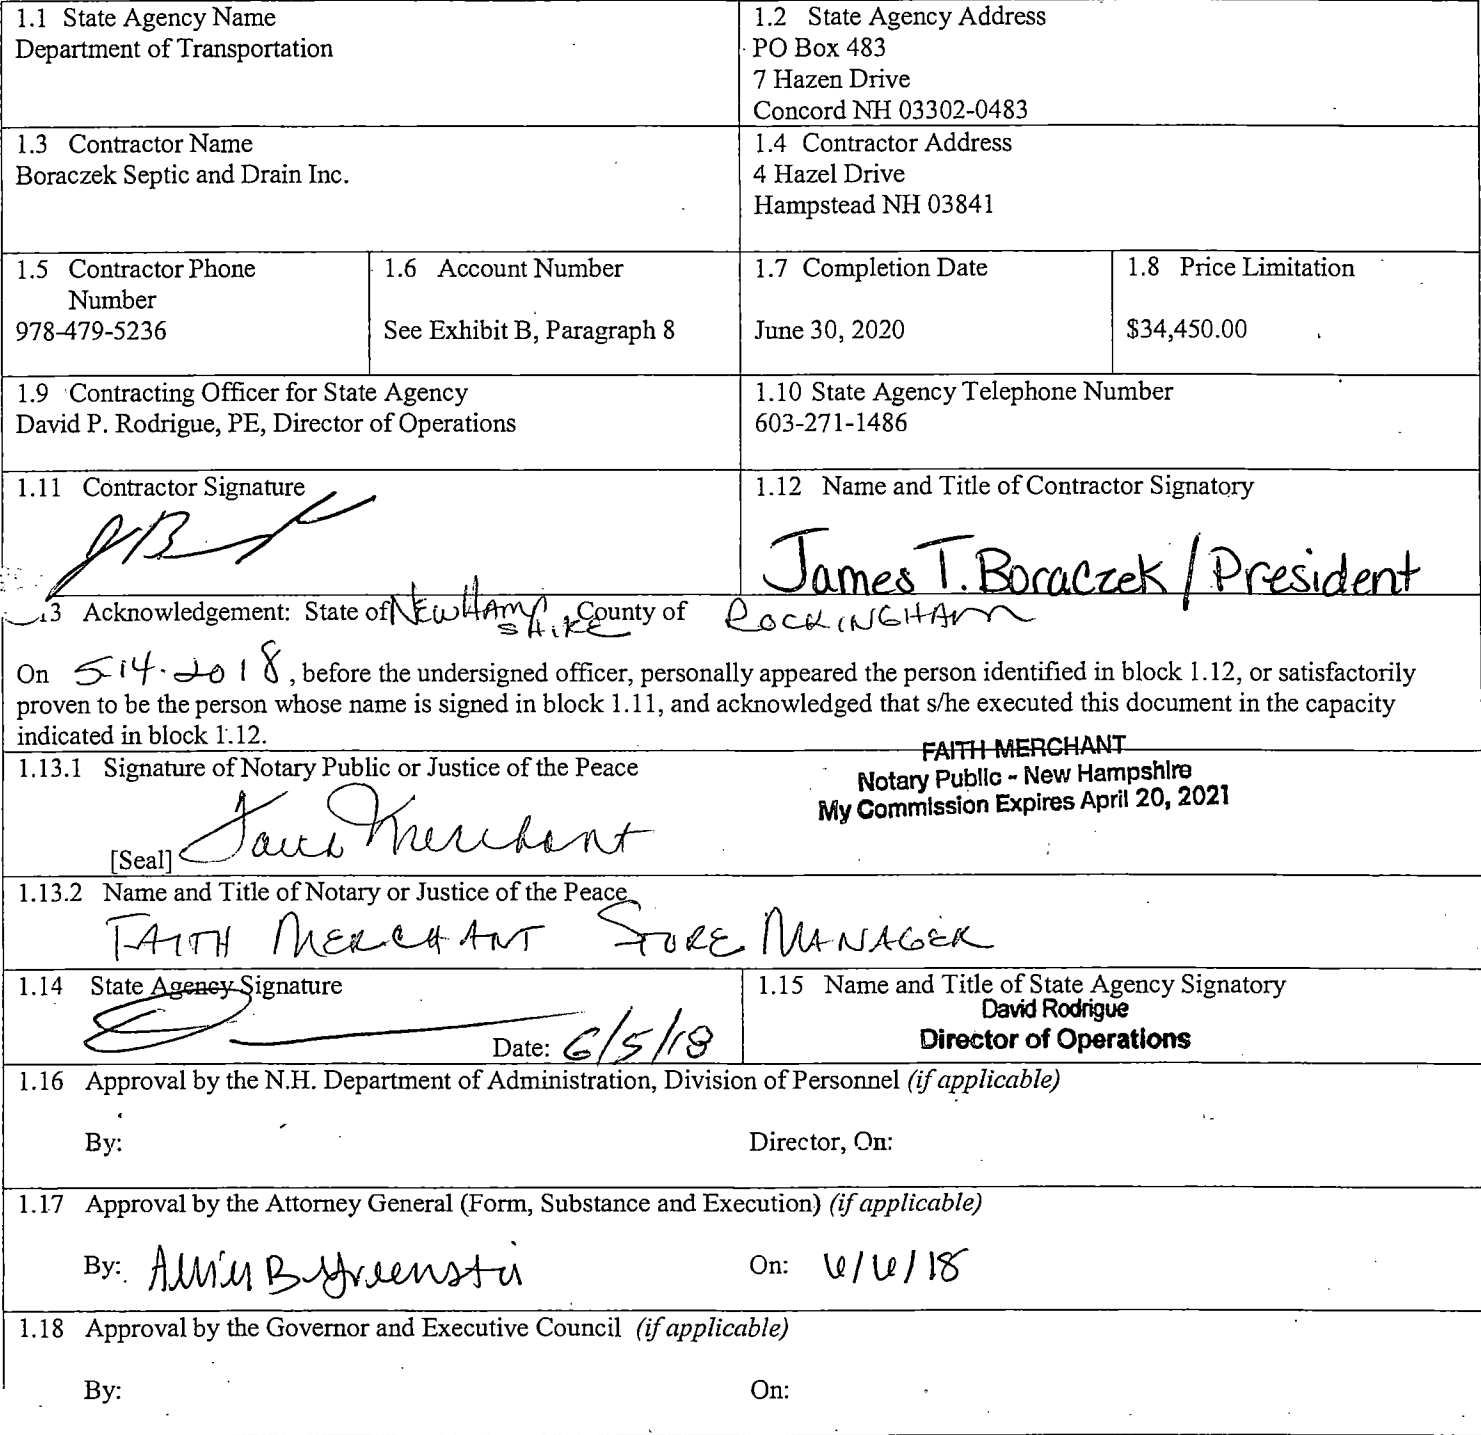 1.1 State Agency Name
Department of Transportation
1.2 State Agency Address
PO Box 483
7 Hazen Drive
Concord NH 03302-0483
1.3 Contractor Name
Boraczek Septic and Drain Inc.
1.4 Contractor Address
4 Hazel Drive
Hampstead NH 03841
1.5 Contractor Phone
Number
978-479-5236
1.6 Account Number
See Exhibit B, Paragraph 8
1.7 Completion Date
June 30, 2020
1.8 Price Limitation
$34,450.00
1.9 Contracting Officer for State Agency
David P. Rodrigue, PE, Director of Operations
1.10 State Agency Telephone Number
603-271-1486
1.11 Contractor Signature
1.12 Name and Title of Contractor Signatory
James T. Boraczek / President
.13 Acknowledgement: State of NEW HAMPSHIRE County of ROCKINGHAM
On 5-14-2018, before the undersigned officer, personally appeared the person identified in block 1.12, or satisfactorily
proven to be the person whose name is signed in block 1.11, and acknowledged that s/he executed this document in the capacity
indicated in block 1.12.
1.13.1 Signature of Notary Public or Justice of the Peace
FAITH MERCHANT
Notary Public - New Hampshire
My Commission Expires April 20, 2021
[Seal] Faith Merchant
1.13.2 Name and Title of Notary or Justice of the Peace
FAITH MERCHANT STORE MANAGER
1.14 State Agency Signature
Date: 6/5/18
1.15 Name and Title of State Agency Signatory
David Rodrigue
Director of Operations
1.16 Approval by the N.H. Department of Administration, Division of Personnel (if applicable)
By: Director, On:
1.17 Approval by the Attorney General (Form, Substance and Execution) (if applicable)
By: B Greenstein On: 6/6/18
1.18 Approval by the Governor and Executive Council (if applicable)
By: On: